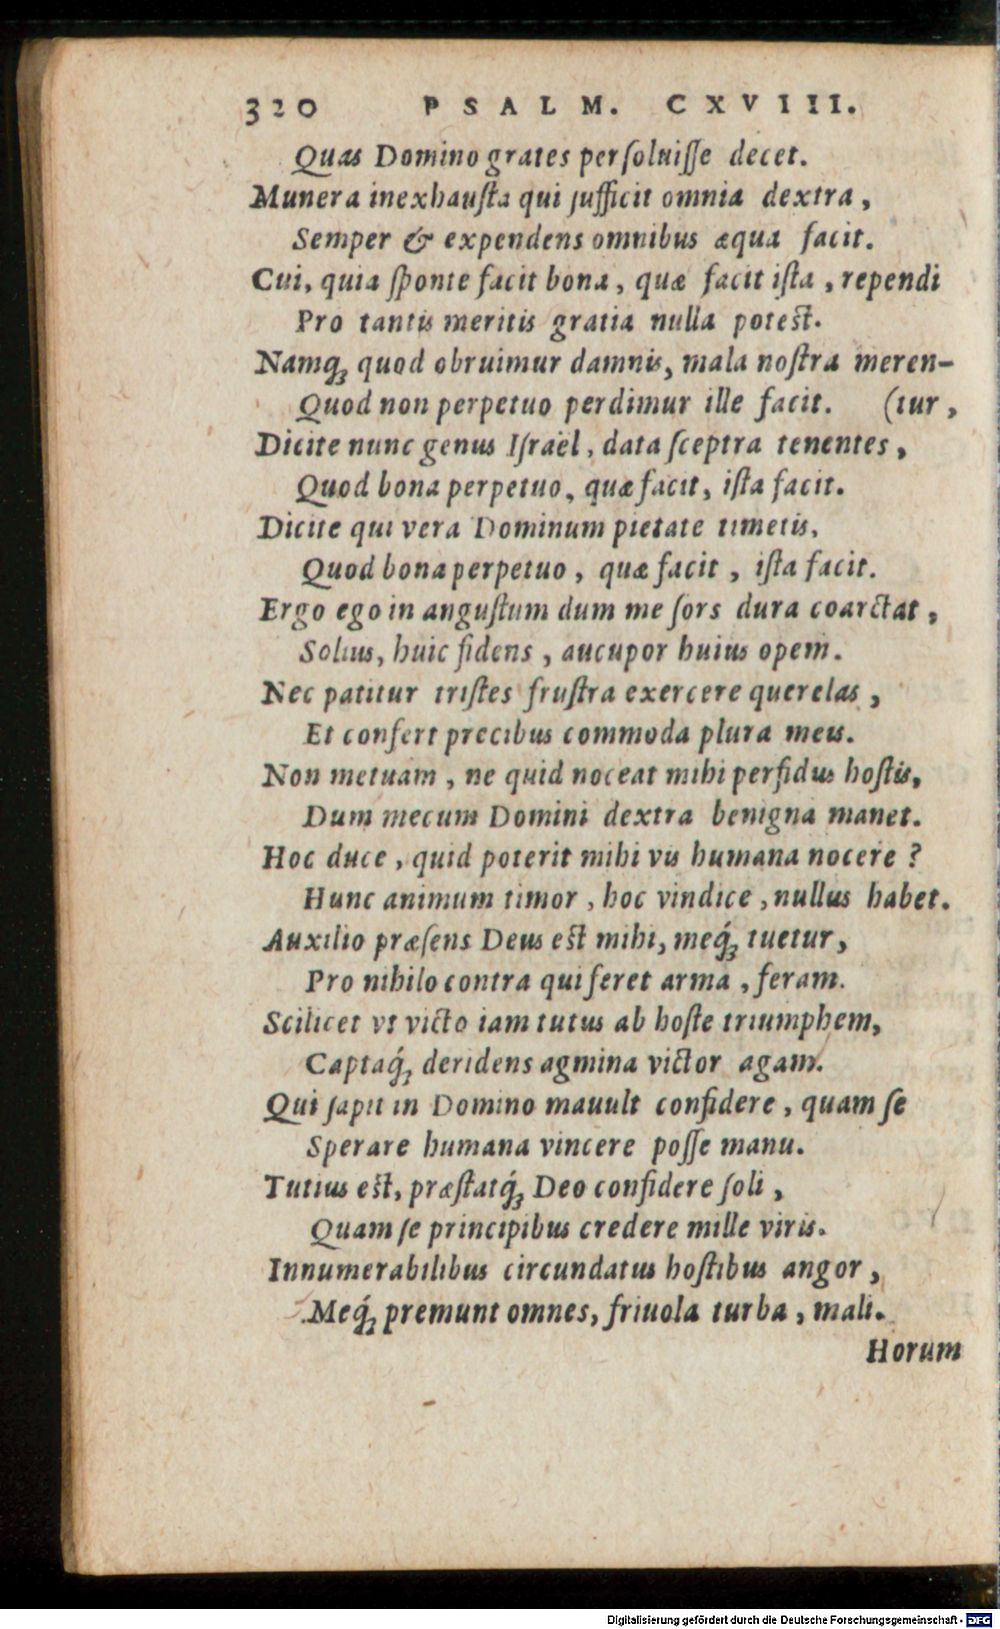 320 PSALM. CXVIII.
Quas Domino grates persoluisse decet.
Munera inexhausta qui sufficit omnia dextra,
Semper & expendens omnibus æqua facit.
Cui, quia sponte facit bona, quæ facit ista, rependi
Pro tantis meritis gratia nulla potest.
Namq́ꝫ quod obruimur damnis, mala nostra meren-
Quod non perpetuo perdimur ille facit. (tur,
Dicite nunc genus Israël, data sceptra tenentes,
Quod bona perpetuo, quæ facit, ista facit.
Dicite qui vera Dominum pietate timetis,
Quod bona perpetuo, quæ facit, ista facit.
Ergo ego in angustum dum me sors dura coarctat,
Solius, huic fidens, aucupor huius opem.
Nec patitur tristes frustra exercere querelas,
Et confert precibus commoda plura meis.
Non metuam, ne quid noceat mihi perfidus hostis,
Dum mecum Domini dextra benigna manet.
Hoc duce, quid poterit mihi vis humana nocere?
Hunc animum timor, hoc vindice, nullus habet.
Auxilio præsens Deus est mihi, meq́ꝫ tuetur,
Pro nihilo contra qui feret arma, feram.
Scilicet vt victo iam tutus ab hoste triumphem,
Captaq́ꝫ deridens agmina victor agam.
Qui sapit in Domino mauult confidere, quam se
Sperare humana vincere posse manu.
Tutius est, præstatq́ꝫ Deo confidere soli,
Quam se principibus credere mille viris.
Innumerabilibus circundatus hostibus angor,
Meq́ꝫ premunt omnes, friuola turba, mali.
Horum
Digitalisierung gefördert durch die Deutsche Forschungsgemeinschaft - DFG